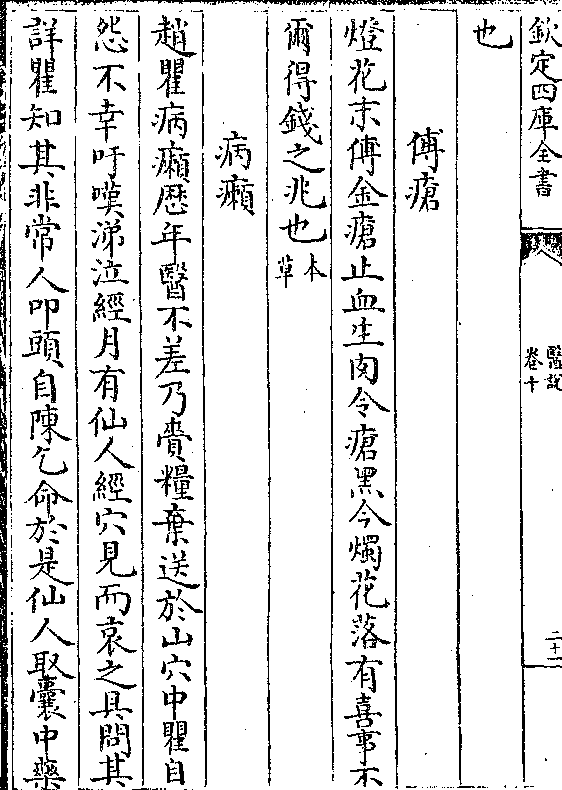 欽定四庫全書
醫説
卷十
二十一
也
傅瘡
燈花末傅金瘡止血生肉令瘡黑今燭花落有喜事不
爾得錢之兆也本草
病癩
趙瞿病癩歴年醫不差乃賫糧棄送於山穴中瞿自
怨不幸吁嘆涕泣經月有仙人經穴見而哀之具問其
詳瞿知其非常人叩頭自陳乞命於是仙人取囊中藥